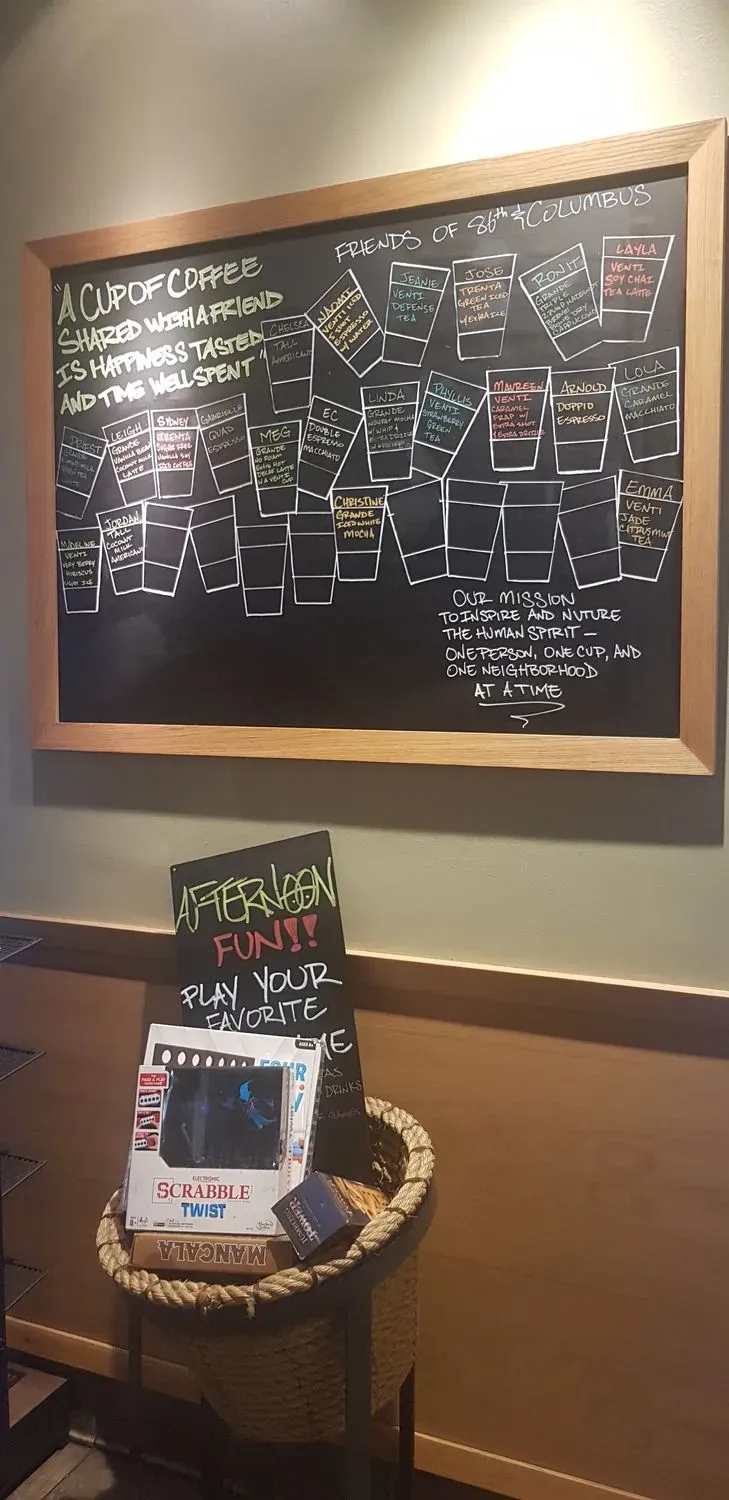 FRIENDS OF 86th & COLUMBUS
"A CUP OF COFFEE
SHARED WITH A FRIEND
IS HAPPINESS TASTED
AND TIME WELL SPENT"
CHELSEA
TALL
AMERICANO
NAOMI
VENTI ICED
SHOT
ESPRESSO
W/ WATER
JEANIE
VENTI
DEFENSE
TEA
JOSE
TRENTA
GREEN ICED
TEA
W/ EXTRA ICE
RONIT
GRANDE
TRIPLE
BONE DRY
CAPPUCCINO
LAYLA
VENTI
SOY CHAI
TEA LATTE
LEIGH
GRANDE
VANILLA BEAN
COCONUT MILK
LATTE
SYDNEY
TRENTA
SUGAR FREE
VANILLA SOY
ICED COFFEE
GABRIELLE
QUAD
ESPRESSO
MEG
GRANDE
NO FOAM
EXTRA HOT
DECAF LATTE
IN A VENTI
CUP
EC
DOUBLE
ESPRESSO
MACCHIATO
LINDA
GRANDE
MOCHA
W/ WHIP &
EXTRA DRIZZLE
PHYLLIS
VENTI
STRAWBERRY
GREEN
TEA
MAUREEN
VENTI
CARAMEL
FRAP W/
EXTRA SHOT
& EXTRA DRIZZLE
ARNOLD
DOPPIO
ESPRESSO
LOLA
GRANDE
CARAMEL
MACCHIATO
MADELINE
VENTI
VERY BERRY
HIBISCUS
LIGHT ICE
JORDAN
TALL
COCONUT
MILK
AMERICANO
CHRISTINE
GRANDE
ICED WHITE
MOCHA
EMMA
VENTI
JADE
CITRUS MINT
TEA
OUR MISSION
TO INSPIRE AND NUTURE
THE HUMAN SPIRIT –
ONE PERSON, ONE CUP, AND
ONE NEIGHBORHOOD
AT A TIME
AFTERNOON
FUN!!
PLAY YOUR
FAVORITE
DRINKS
GAMES
AGES 6+
ELECTRONIC
SCRABBLE
TWIST
Hasbro
TUMBLING
TOWER
MANCALA